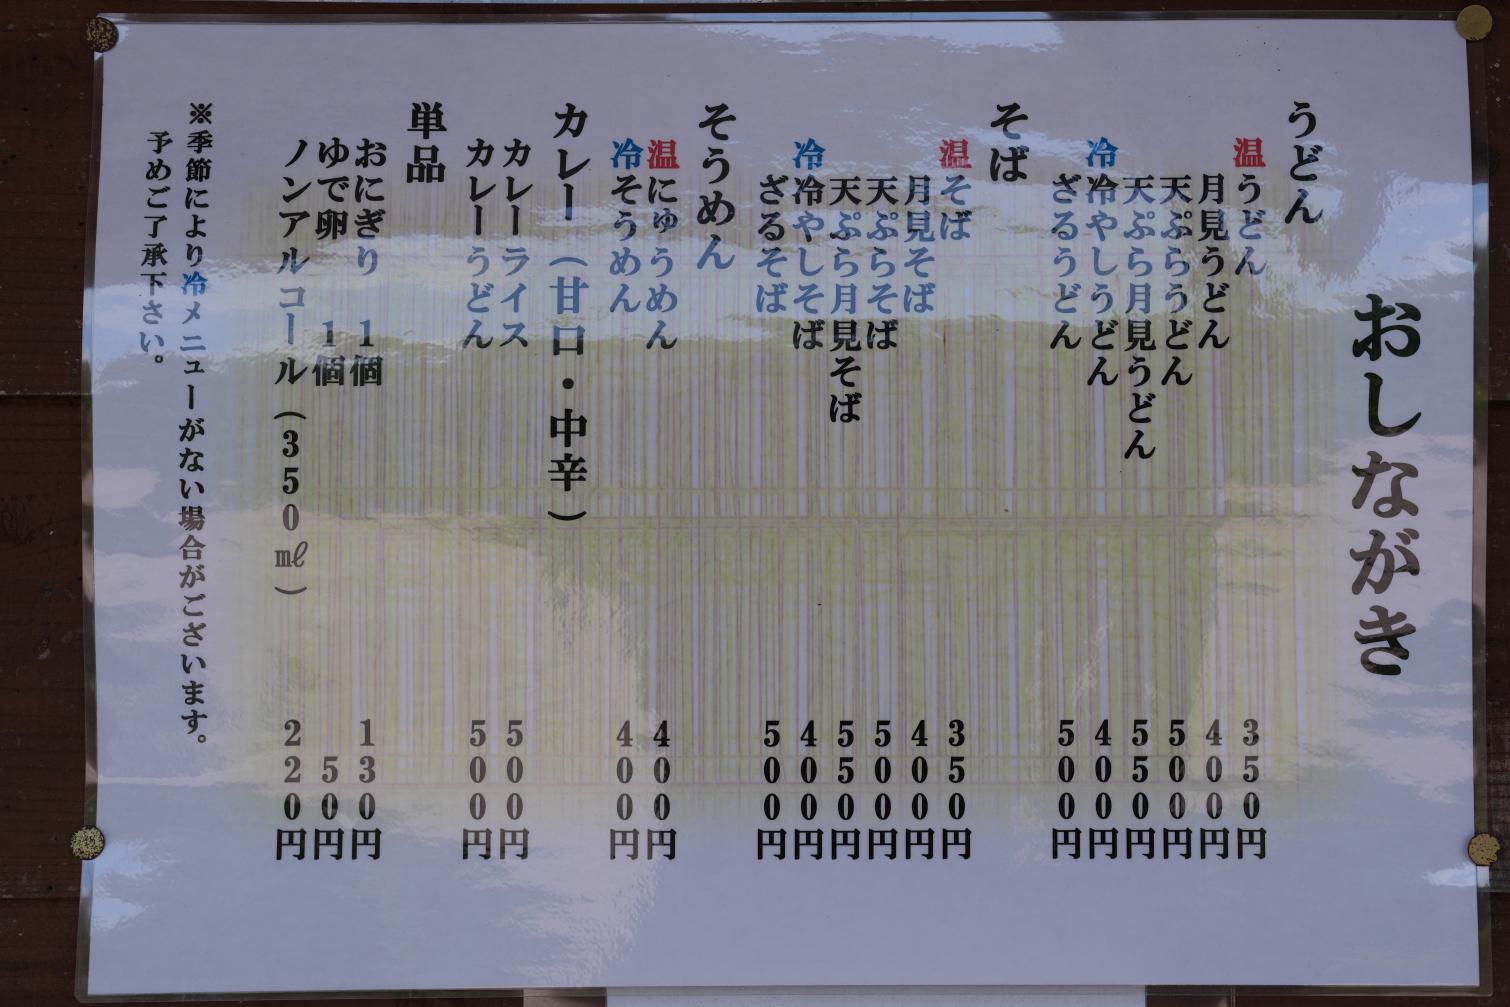 おしながき
うどん
温うどん 350円
月見うどん 400円
天ぷらうどん 500円
天ぷら月見うどん 550円
冷冷やしうどん 400円
ざるうどん 500円
そば
温そば 350円
月見そば 400円
天ぷらそば 500円
天ぷら月見そば 550円
冷冷やしそば 400円
ざるそば 500円
そうめん
温にゅうめん 400円
冷そうめん 400円
カレー（甘口・中辛）
カレーライス 500円
カレーうどん 500円
単品
おにぎり 1個 130円
ゆで卵 1個 50円
ノンアルコール（350㎖） 220円
※季節により冷メニューがない場合がございます。
予めご了承下さい。